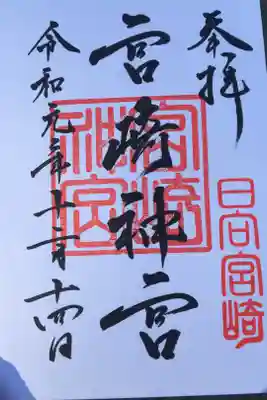 奉拝
日向宮崎
宮崎神宮
宮崎神宮
令和元年十二月十四日